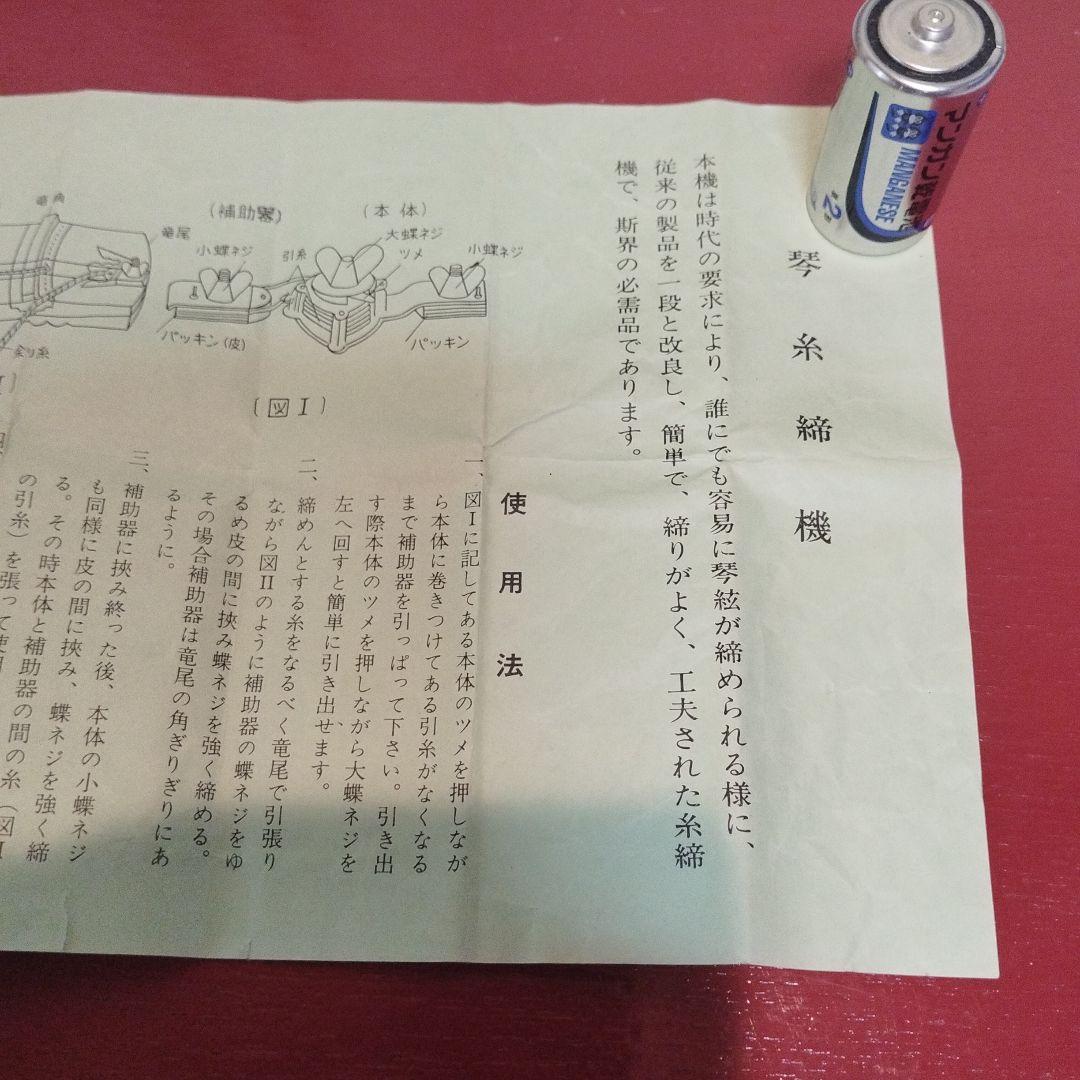 琴糸締機
本機は時代の要求により、誰にでも容易に琴絃が締められる様に、
従来の製品を一段と改良し、簡単で、締りがよく、工夫された糸締
機で、斯界の必需品であります。
使用法
一、図Ⅰに記してある本体のツメを押しなが
ら本体に巻きつけてある引糸がなくなる
まで補助器を引っぱって下さい。引き出
す際本体のツメを押しながら大蝶ネジを
左へ回すと簡単に引き出せます。
二、締めんとする糸をなるべく竜尾で引張り
ながら図Ⅱのように補助器の蝶ネジをゆ
るめ皮の間に挾み蝶ネジを強く締める。
その場合補助器は竜尾の角ぎりぎりにあ
るように。
三、補助器に挾み終った後、本体の小蝶ネジ
も同様に皮の間に挾み、蝶ネジを強く締
る。その時本体と補助器の間の糸(図Ⅰ
の引糸)を張って使用
(本体)
大蝶ネジ
小蝶ネジ
ツメ
パッキン
(補助器)
小蝶ネジ
引糸
パッキン(皮)
竜角
竜尾
(図Ⅰ)
マンガン乾電池
MANGANESE
単2